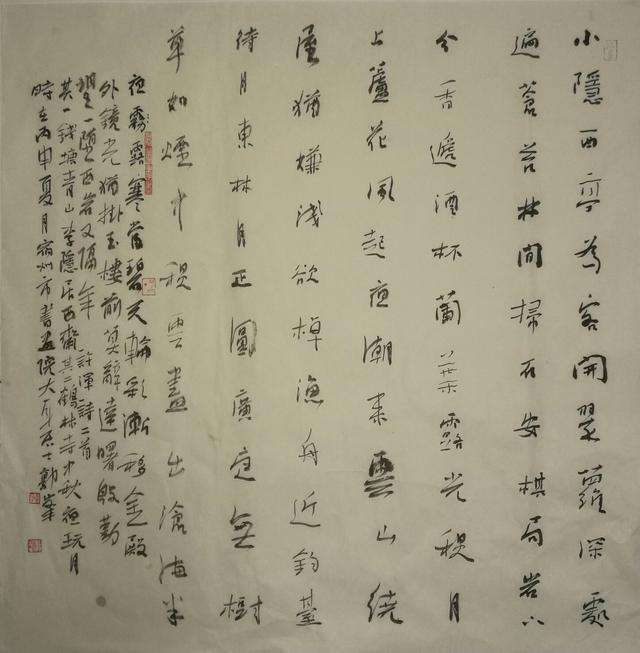 小隱西亭為客開翠蘿深處
遍蒼苔林間掃石安棋局岩下
分香遞酒杯蘭葉露光秋月
上蘆花風起夜潮來雲山繞
屋猶嫌淺欲棹漁舟近釣臺
待月東林月正圓廣庭無樹
草如煙中秋雲盡出滄海半
夜霧露寒當碧天輪彩漸移金殿
外鏡光猶掛玉樓前莫辭達曙殷勤
望一墮西岩又隔年 許渾詩二首
其一錢塘青山李隱居西齋其二鶴林寺中秋夜玩月
時在丙申夏月宿州市書畫院大